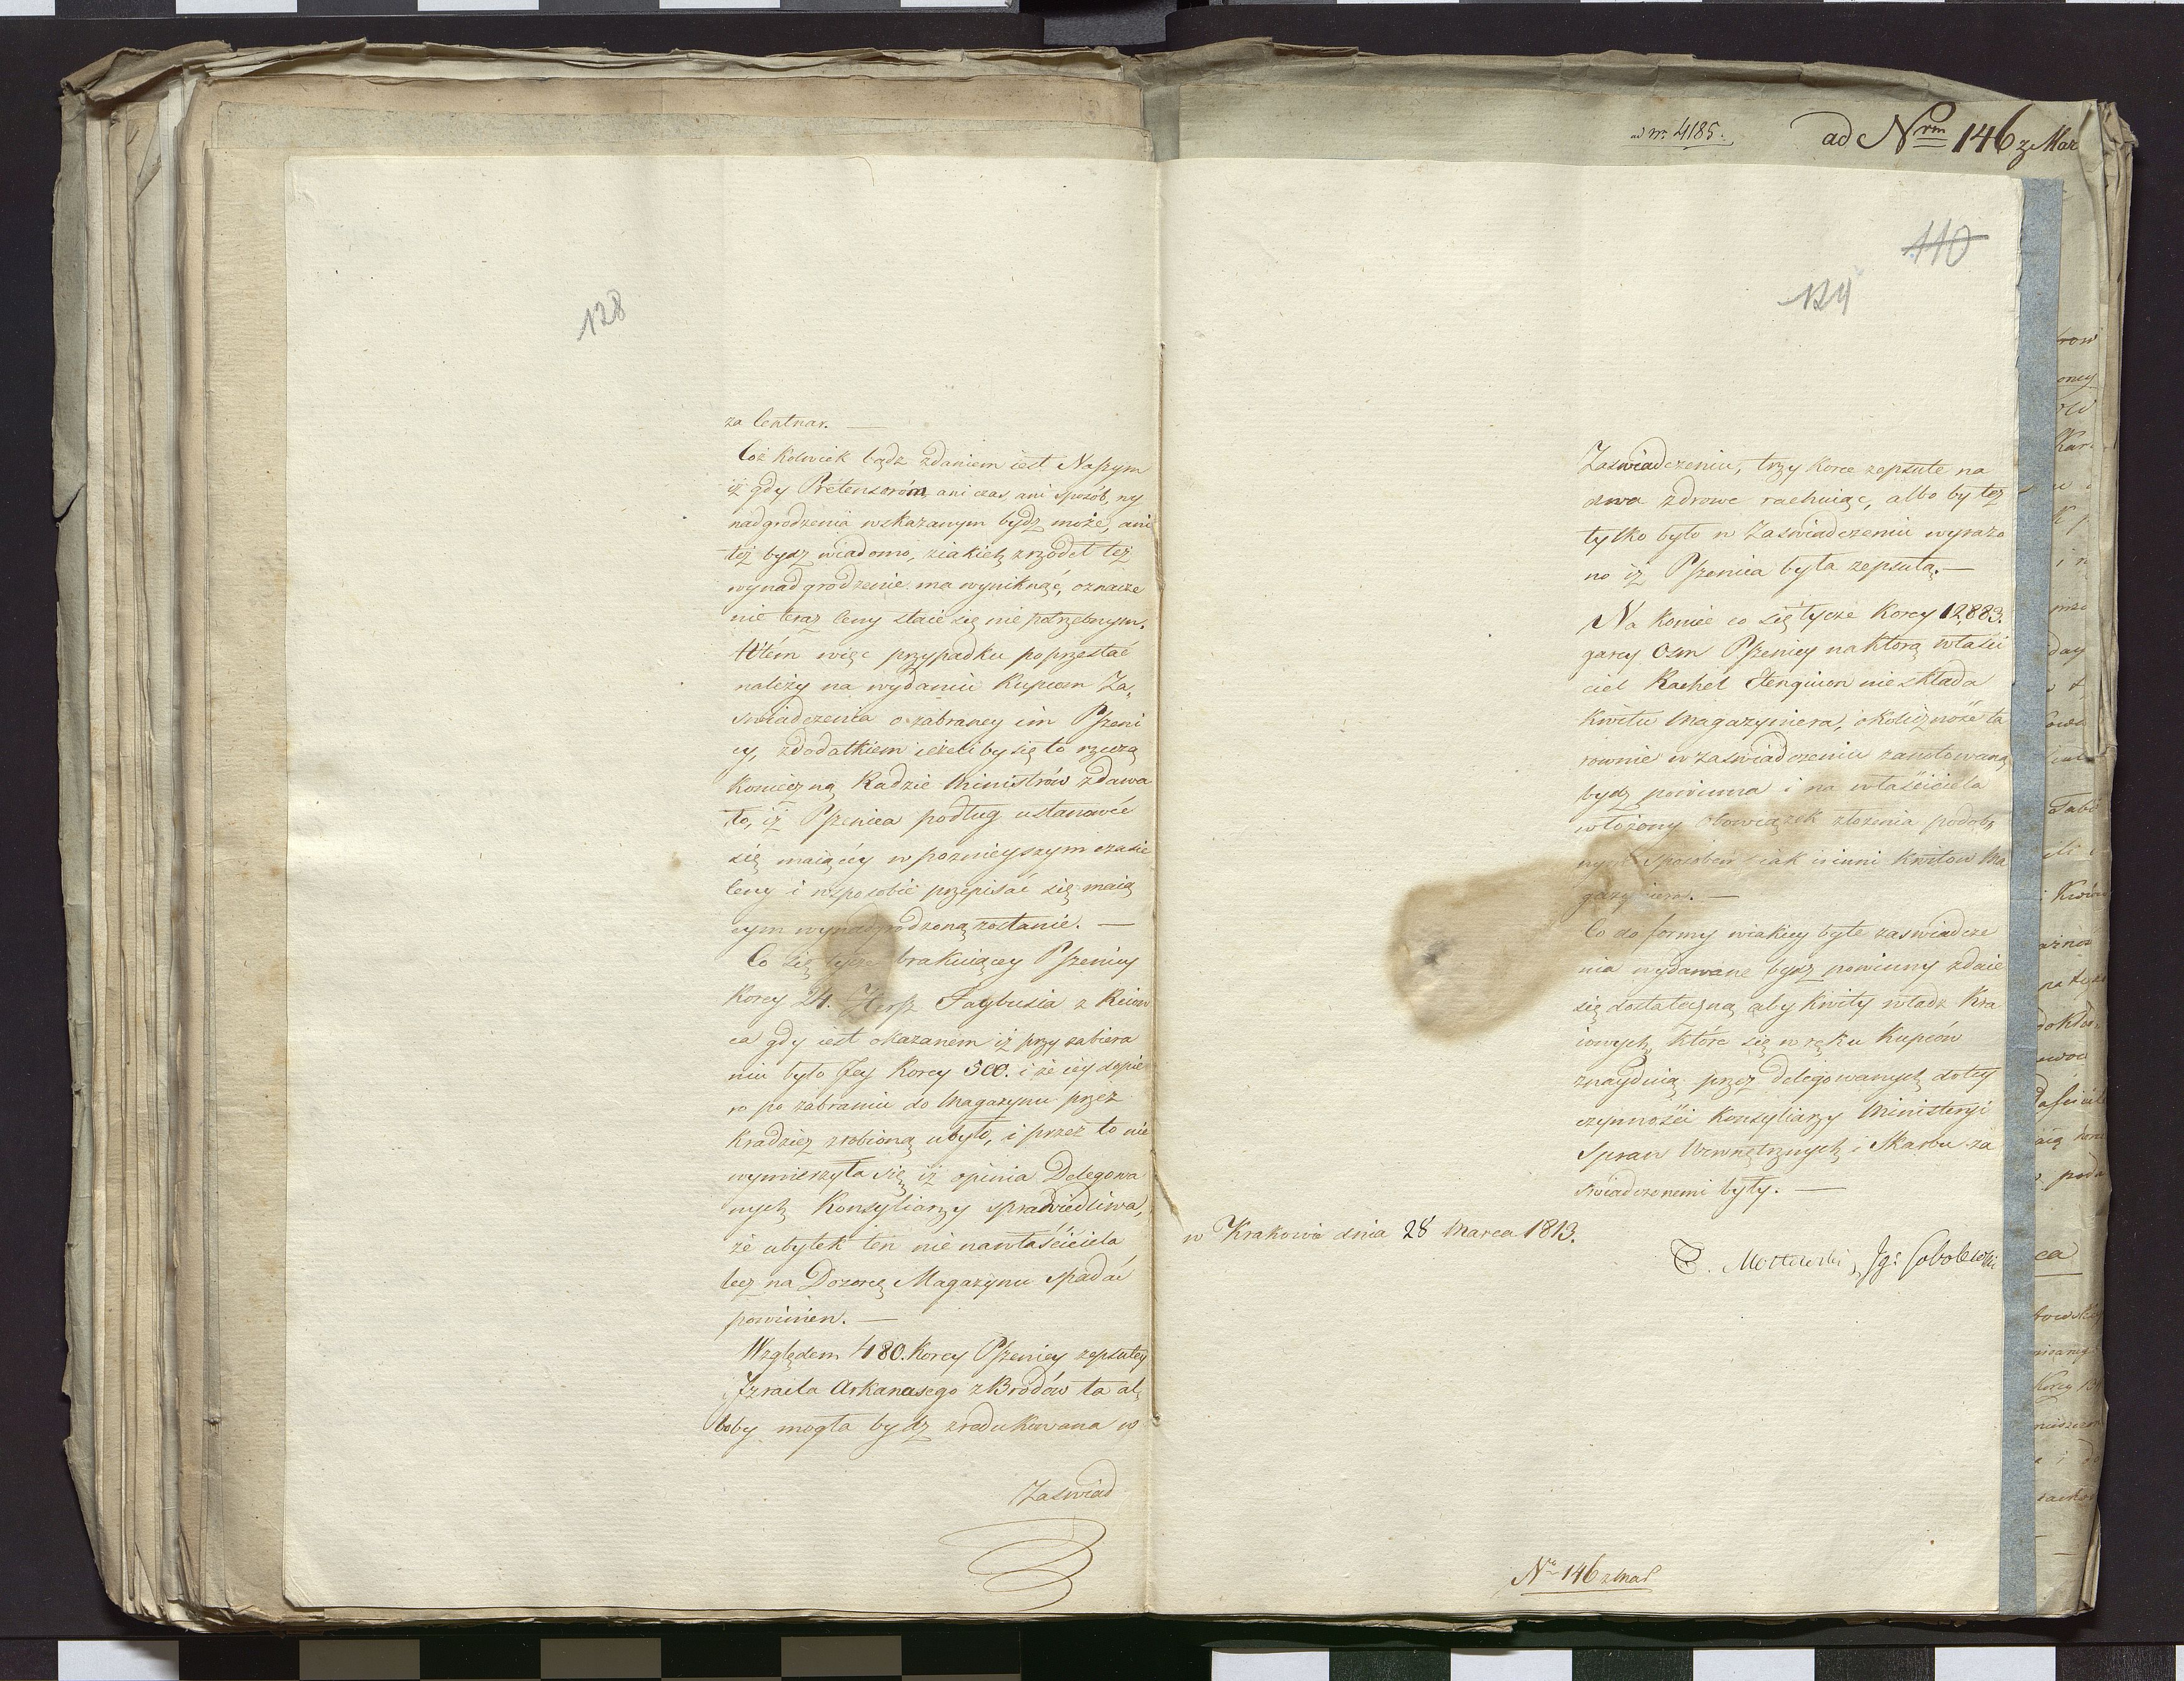 128
za Centnar. —
Coż kolwiek bądz zdaniem iest Naszym
iż gdy Pretensorom ani czas, ani sposób, wy
nadgrodzenia wskazanym bydz może, ani
też bydz wiadomo, ziakich zrzodeł też
wynadgrodzenie ma wyniknąć, oznacze
nie teraz Ceny staie się nie potrzebnym.
Wtém więc przypadku poprzestać
należy na wydaniu Kupcom Za„
świadczenia o zabraney im Pszeni
cy, zdodatkiem ieżeli by się to rzeczą
konieczną Radzie Ministrów zdawa
ło, iż Pszenica podług ustanowić
się maiącéy w poznieyszym czasie
Ceny i wsposobie przepisać się maią
cym wynadgrodzoną zostanie. —
Co się tycze brakuiącey Pszenicy
Korcy 24. Hersz Faybusia z Kiiow
ca gdy iest okazanem iż przy zabiera
niu było Jey Korcy 300. i że iéy dopie
ro po zabraniu do Magazynu przez
kradzież zrobioną ubyło, i przez to nie
wymierzyła się, iż opinia Delegowa
nych Konsyliarzy sprawiedliwa,
że ubytek ten nie na właściciela
lecz na Dozorcę Magazynu spadać
powinien. —
Względem 480. Korcy Pszenicy zepsutey
Izraela Arkanasego z Brodów ta al„
boby mogła bydz zredukowana w
Zaświad
ad Nr. 4185.
ad Nrm 146 z Mar
110
Zaświadczeniu, trzy korce zepsute na
dwa zdrowe rachuiąc, albo by też
tylko było w Zaświadczeniu wyrażo
no iż Pszenica była zepsutą. —
Na koniec co się tycze Korcy 12,883.
garcy Osm Pszenicy na ktorą właści
ciel Rachel nie składa
kwitu Magazyniera, okoliczność ta
rownie w zaświadczeniu zanotowaną
bydz powinna i na właściciela
włożony obowiązek złożenia podob„
nym sposobem iak i inni kwitow Ma
gazyniera. —
Co do formy w iakiey byte zaswiadcze
nia wydawane bydz powinny zdaie
się dostateczną aby kwity władz Kra
iowych, które się w ręku Kupców
znayduią przez Delegowanych do tey
czynności Konsyliarzy Ministeryi
Spraw Wewnętrznych i Skarbu za
świadczonemi były. —
w Krakowie dnia 28 Marca 1813.
T. Mostowski, Jg: Sobolewski
No 146 z Mar